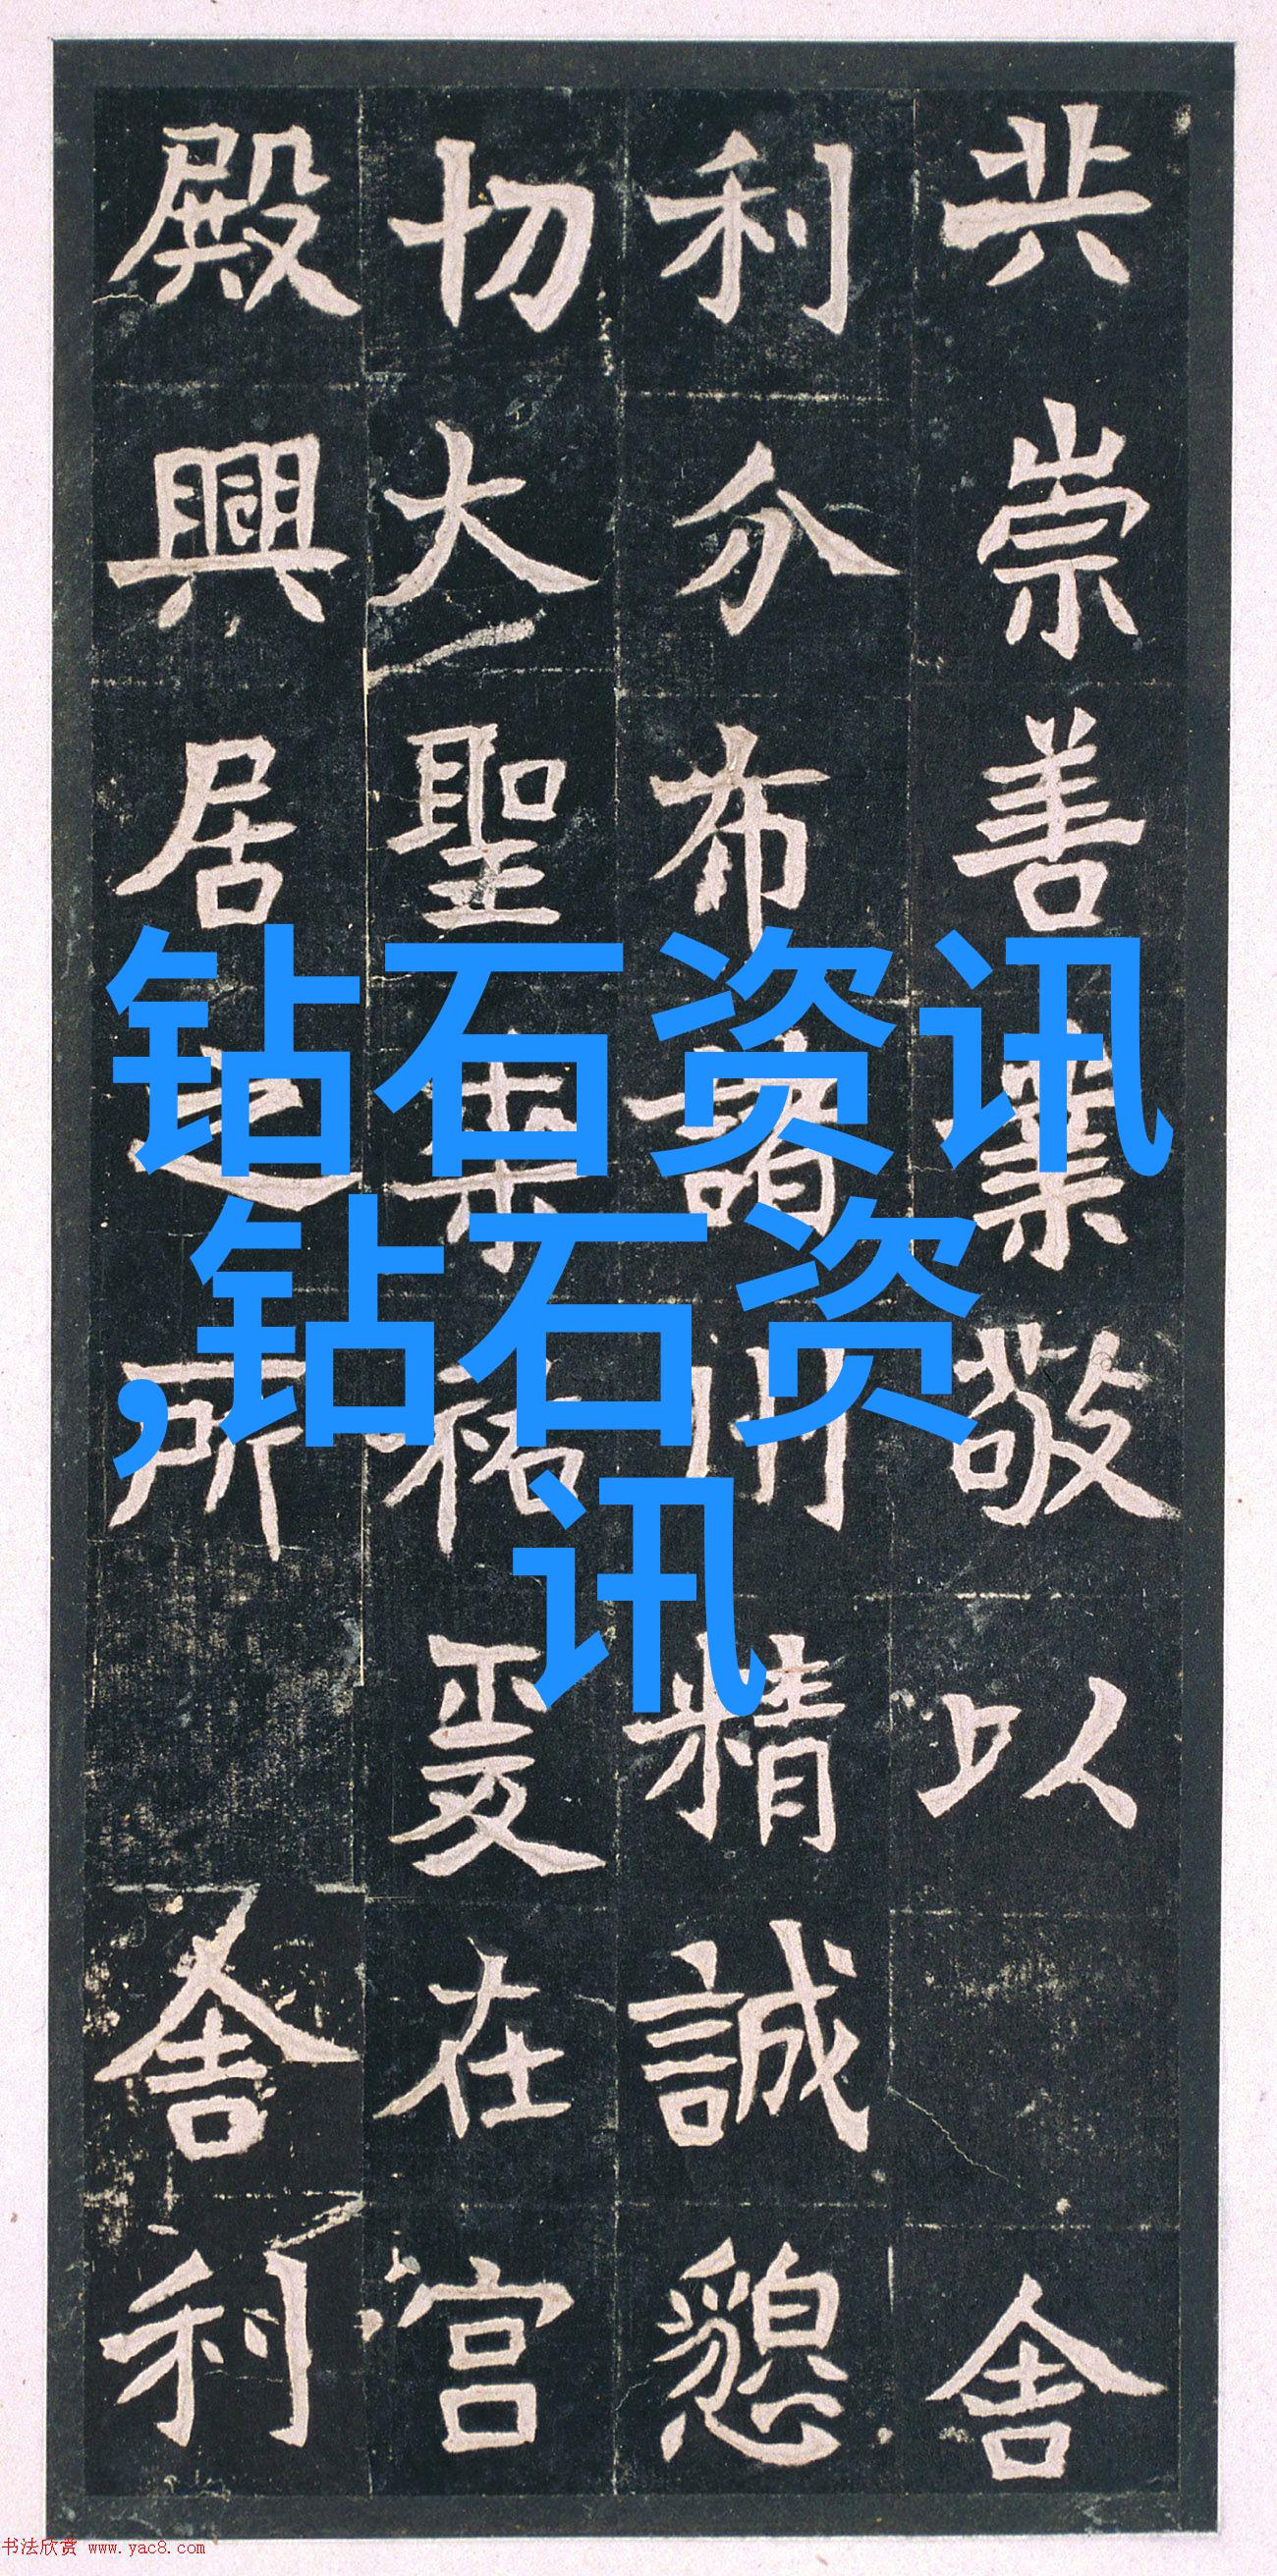 共崇善業敬以舍
利分布諸州精誠懇
切大聖祐爰在宫
殿興居之所舍利
钻石资讯
,钻石资
讯
书法欣赏 www.yac8.com